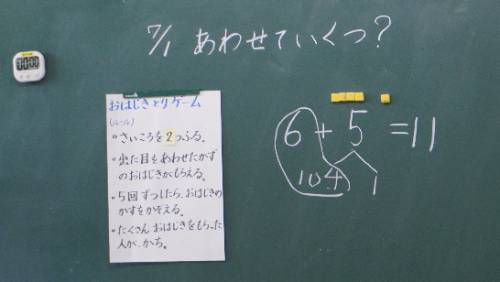 7/1 あわせていくつ?
おはじきとりゲーム
(ルール)
・さいころを2つふる。
・出た目をあわせたかず
のおはじきがもらえる。
・5回ずつしたら、おはじきの
かずをかぞえる。
・たくさんおはじきをもらった
人が、かち。
6+5=11
10 4 1